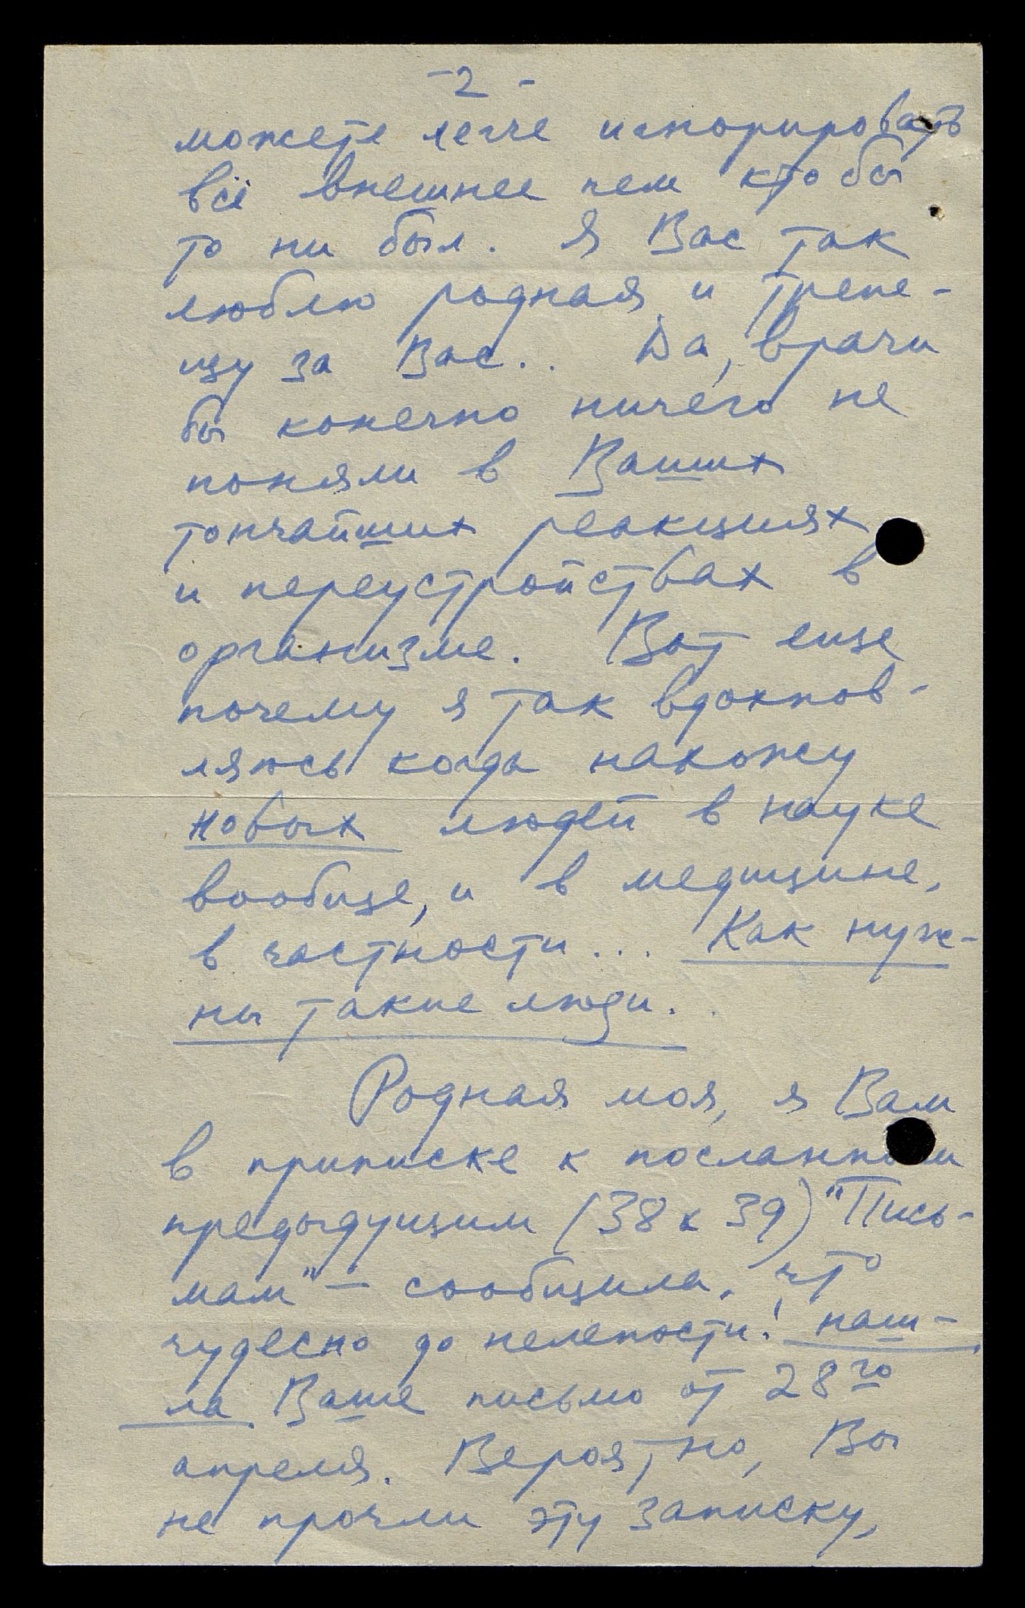 - 2 -
можете легче игнорировать
всё внешнее чем кто бы
то ни был. Я Вас так
люблю родная и трепе-
щу за Вас.. Да, врачи
бы конечно ничего не
поняли в Ваших
тончайших реакциях
и переустройствах в
организме. Вот еще
почему я так вдохнов-
ляюсь когда нахожу
новых людей в науке
вообще, и в медицине,
в частности... Как нуж-
ны такие люди..
Родная моя, я Вам
в приписке к посланным
предыдущим (38 и 39) "Пись-
мам" – сообщила, что
чудесно до нелепости! наш-
ла Ваше письмо от 28го
апреля. Вероятно, Вы
не прочли эту записку,